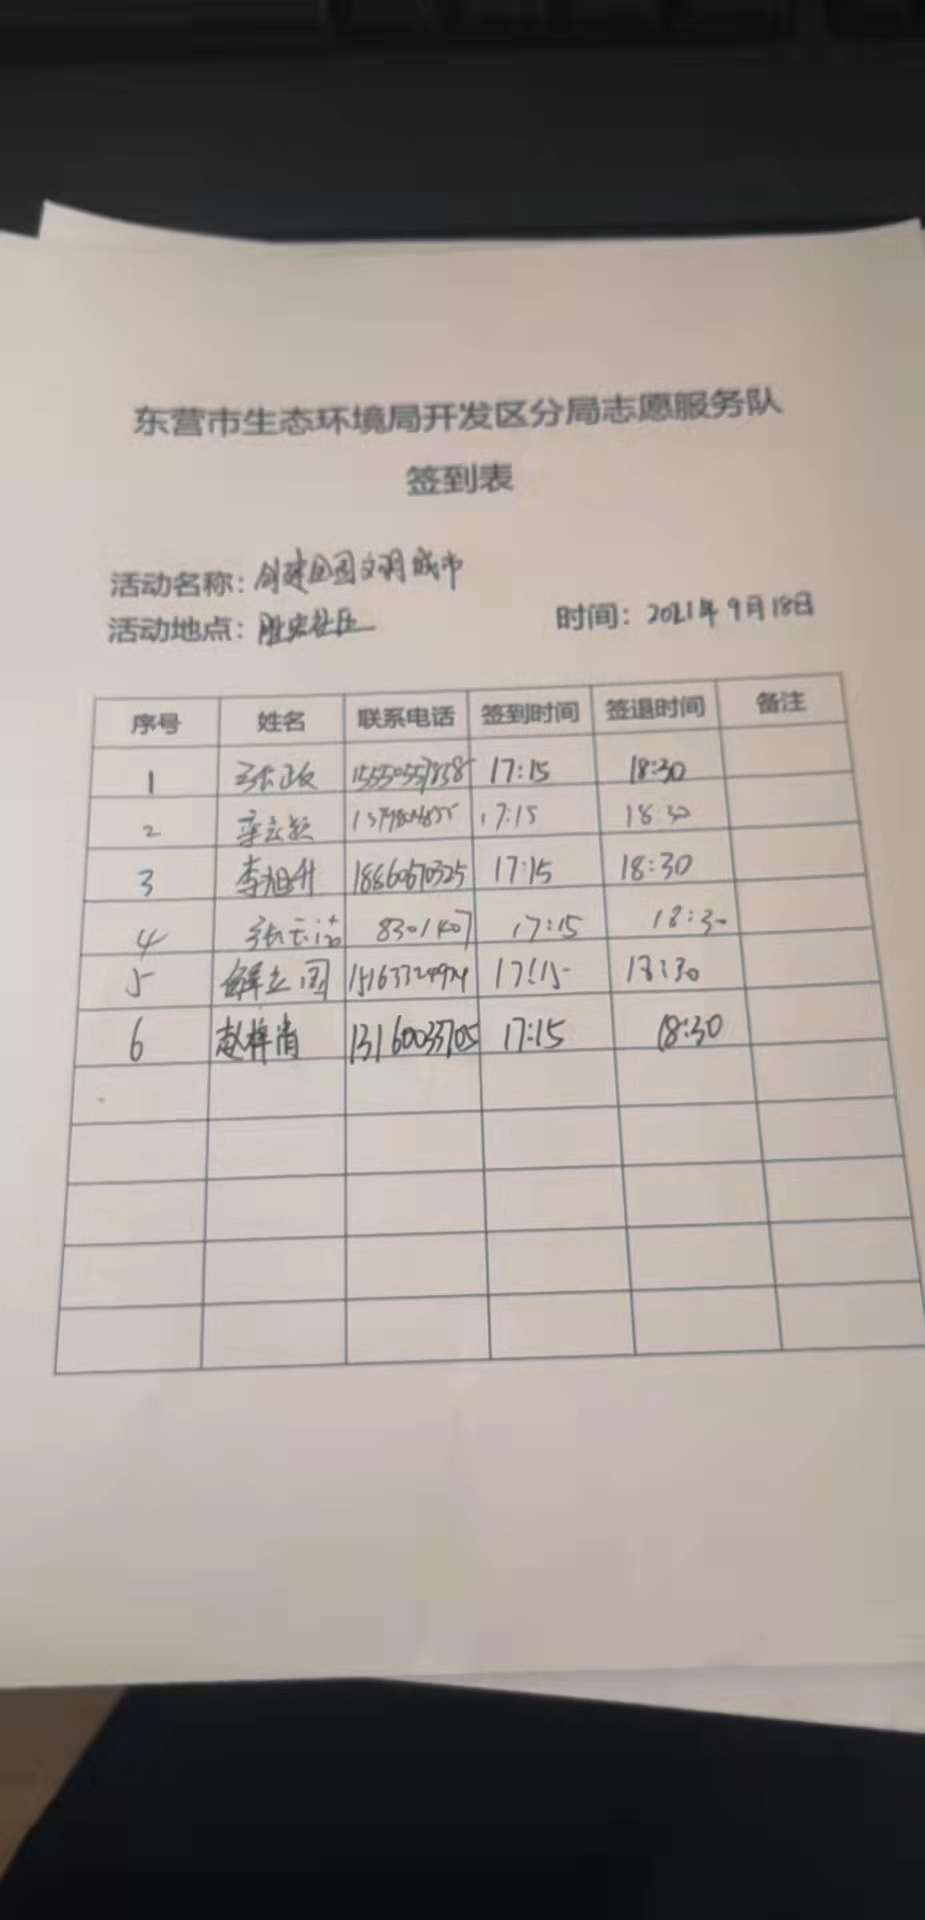 东营市生态环境局开发区分局志愿服务队
签到表
活动名称：创建全国文明城市
活动地点：胜宏社区 时间：2021年9月18日
序号 姓名 联系电话 签到时间 签退时间 备注
1 17:15 18:30
2 17:15 18:30
3 李旭升 18660670325 17:15 18:30
4 8301407 17:15 18:30
5 解立国 17:15 18:30
6 赵梓清 13160033705 17:15 18:30